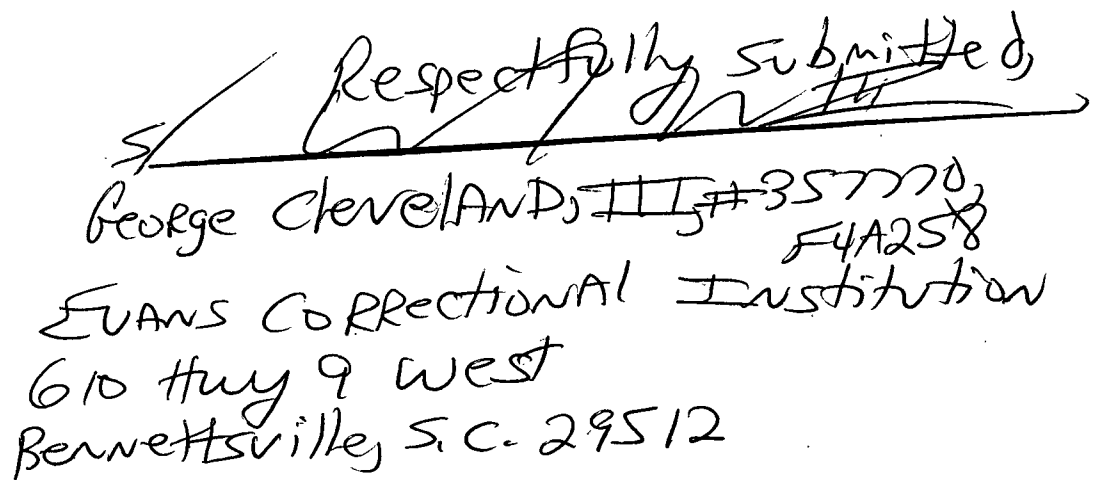 Respectfully submitted,
s/
George Cleveland, III, #357770,
F4A258
Evans Correctional Institution
610 Hwy 9 West
Bennettsville, S.C. 29512